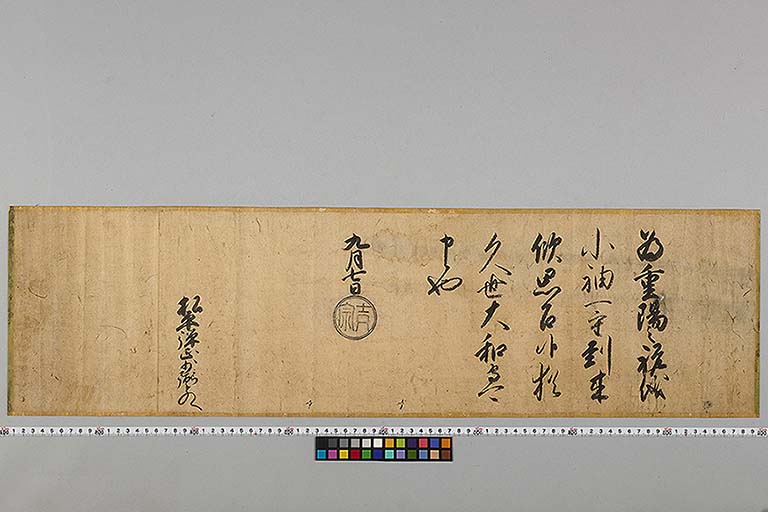 為重陽之祝儀
小袖一重到来
歓思召候猶
久世大和守可
申也
九月七日
吉宗
松平